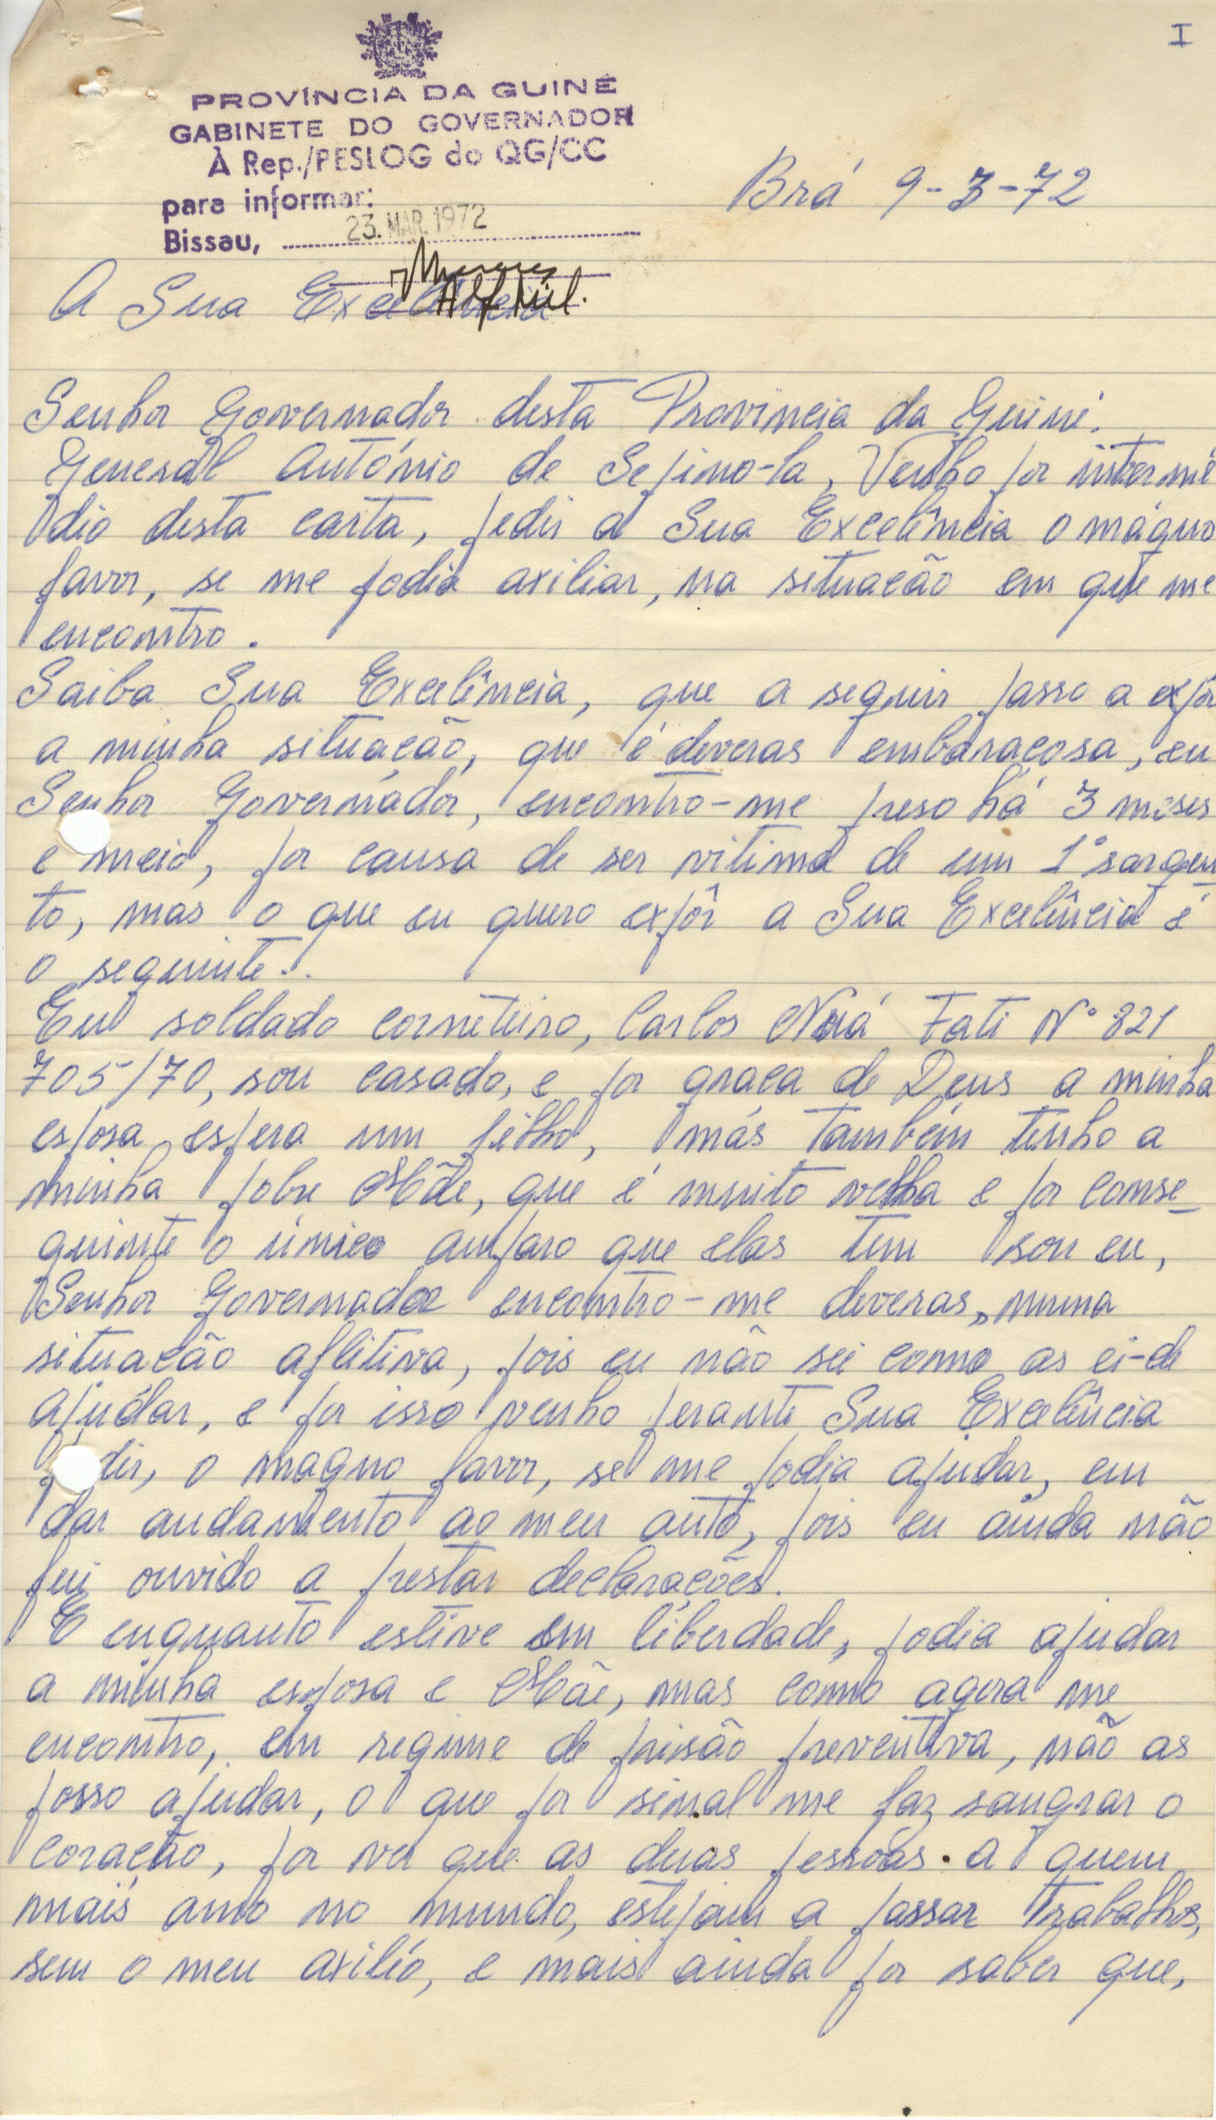 I
PROVÍNCIA DA GUINÉ
GABINETE DO GOVERNADOR
À Rep./PESLOG do QG/CC
para informar:
Bissau, 23. MAR. 1972
Brá 9-3-72
A Sua Excelência
Senhor Governador desta Provincia da Guiné.
General António de Sepino-la, Venho por intermé
dio desta carta, pedir a Sua Excelência o mágno
favor, se me podia axiliar, na situacão em que me
encontro.
Saiba Sua Excelência, que a seguir passo a expôr
a minha situacão, que é deveras embaracosa, eu
Senhor Governádor, encontro-me preso há 3 meses
e meio, por causa de ser vitima de um 1º sargen
to, mas o que eu quero expôr a Sua Excelência é
o seguinte..
Eu soldado corneteiro, Carlos Naá Fati Nº 821
705/70, sou casado, e por graca de Deus a minha
esposa espera um filho, más também tenho a
minha pobre Mãe, que é muito velha e por conse_
guinte o único amparo que elas tem sou eu,
Senhor Governador encontro-me deveras, numa
situacão aflitiva, pois eu não sei como as ei-de
ajudar, e por isso venho perante Sua Excelência
pedir, o magno favor, se me podia ajudar, em
dar andamento ao meu auto, pois eu ainda não
fui ouvido a prestar declaracões.
E enquanto estive em liberdade, podia ajudar
a minha esposa e Mãe, mas como agora me
encontro, em regime de prisão preventiva, não as
posso ajudar, o que por sinal me faz sangrar o
coracão, por ver que as duas pessoas. a quem
mais amo no mundo, estejam a passar trabalhos,
sem o meu axilío, e mais ainda por saber que,